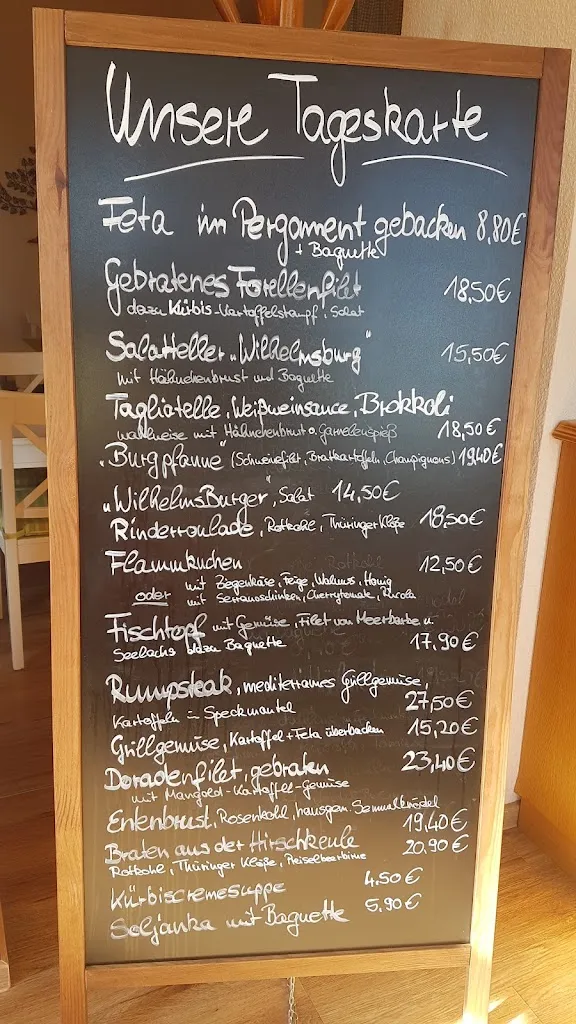 Unsere Tageskarte
Feta im Pergament gebacken 8,80€
+ Baguette
Gebratenes Forellenfilet 18,50€
dazu Kürbis-Kartoffelstampf, Salat
Salatteller „Wilhelmsburg" 15,50€
mit Hähnchenbrust und Baguette
Tagliatelle, Weißweinsauce, Brokkoli
wahlweise mit Hähnchenbrust o. Garnelenspieß 18,50€
„Burgpfanne" (Schweinefilet, Bratkartoffeln, Champignons) 19,40€
„WilhelmsBurger", Salat 14,50€
Rinderroulade, Rotkohl, Thüringer Klöße 18,50€
Flammkuchen 12,50€
mit Ziegenkäse, Feige, Walnuss, Honig
oder mit Serranoschinken, Cherrytomate, Rucola
Fischtopf mit Gemüse, Filet von Meerbarbe u.
Seelachs dazu Baguette 17,90€
Rumpsteak, mediterranes Grillgemüse,
Kartoffeln im Speckmantel 27,50€
Grillgemüse, Kartoffel + Feta überbacken 15,20€
Doradenfilet, gebraten 23,40€
mit Mangold-Kartoffel-Gemüse
Entenbrust, Rosenkohl, hausgem. Semmelknödel 19,40€
Braten aus der Hirschkeule 20,90€
Rotkohl, Thüringer Klöße, Preiselbeerbirne
Kürbiscremesuppe 4,50€
Soljanka mit Baguette 5,90€